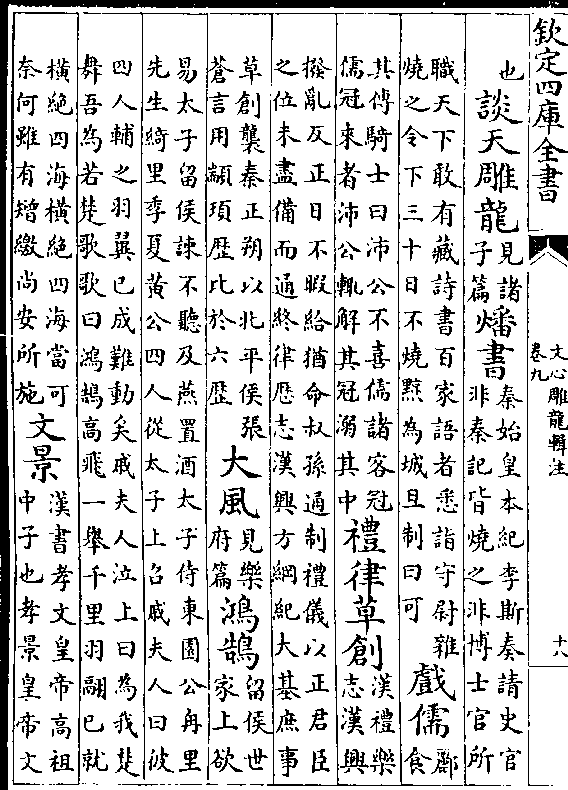 欽定四庫全書
文心雕龍輯注
卷九
十八
也談天雕龍見諸子篇燔書秦始皇本紀李斯奏請史官
非秦記皆燒之非博士官所
職天下敢有藏詩書百家語者悉詣守尉雜
燒之令下三十日不燒黥為城旦制曰可戲儒酈食
其傳騎士曰沛公不喜儒諸客冠
儒冠來者沛公輒解其冠溺其中禮律草創漢禮樂志漢興
撥亂反正日不暇給猶命叔孫通制禮儀以正君臣
之位未盡備而通終律歷志漢興方綱紀大基庶事
草創襲秦正朔以北平侯張
蒼言用顓頊歷比於六歷大風見樂府篇鴻鵠留侯世家上欲
易太子留侯諫不聽及燕置酒太子侍東園公甪里
先生綺里季夏黃公四人從太子上召戚夫人曰彼
四人輔之羽翼已成難動矣戚夫人泣上曰為我楚
舞吾為若楚歌歌曰鴻鵠高飛一舉千里羽翮已就
橫絕四海橫絕四海當可
奈何雖有矰繳尚安所施文景漢書孝文皇帝高祖
中子也孝景皇帝文